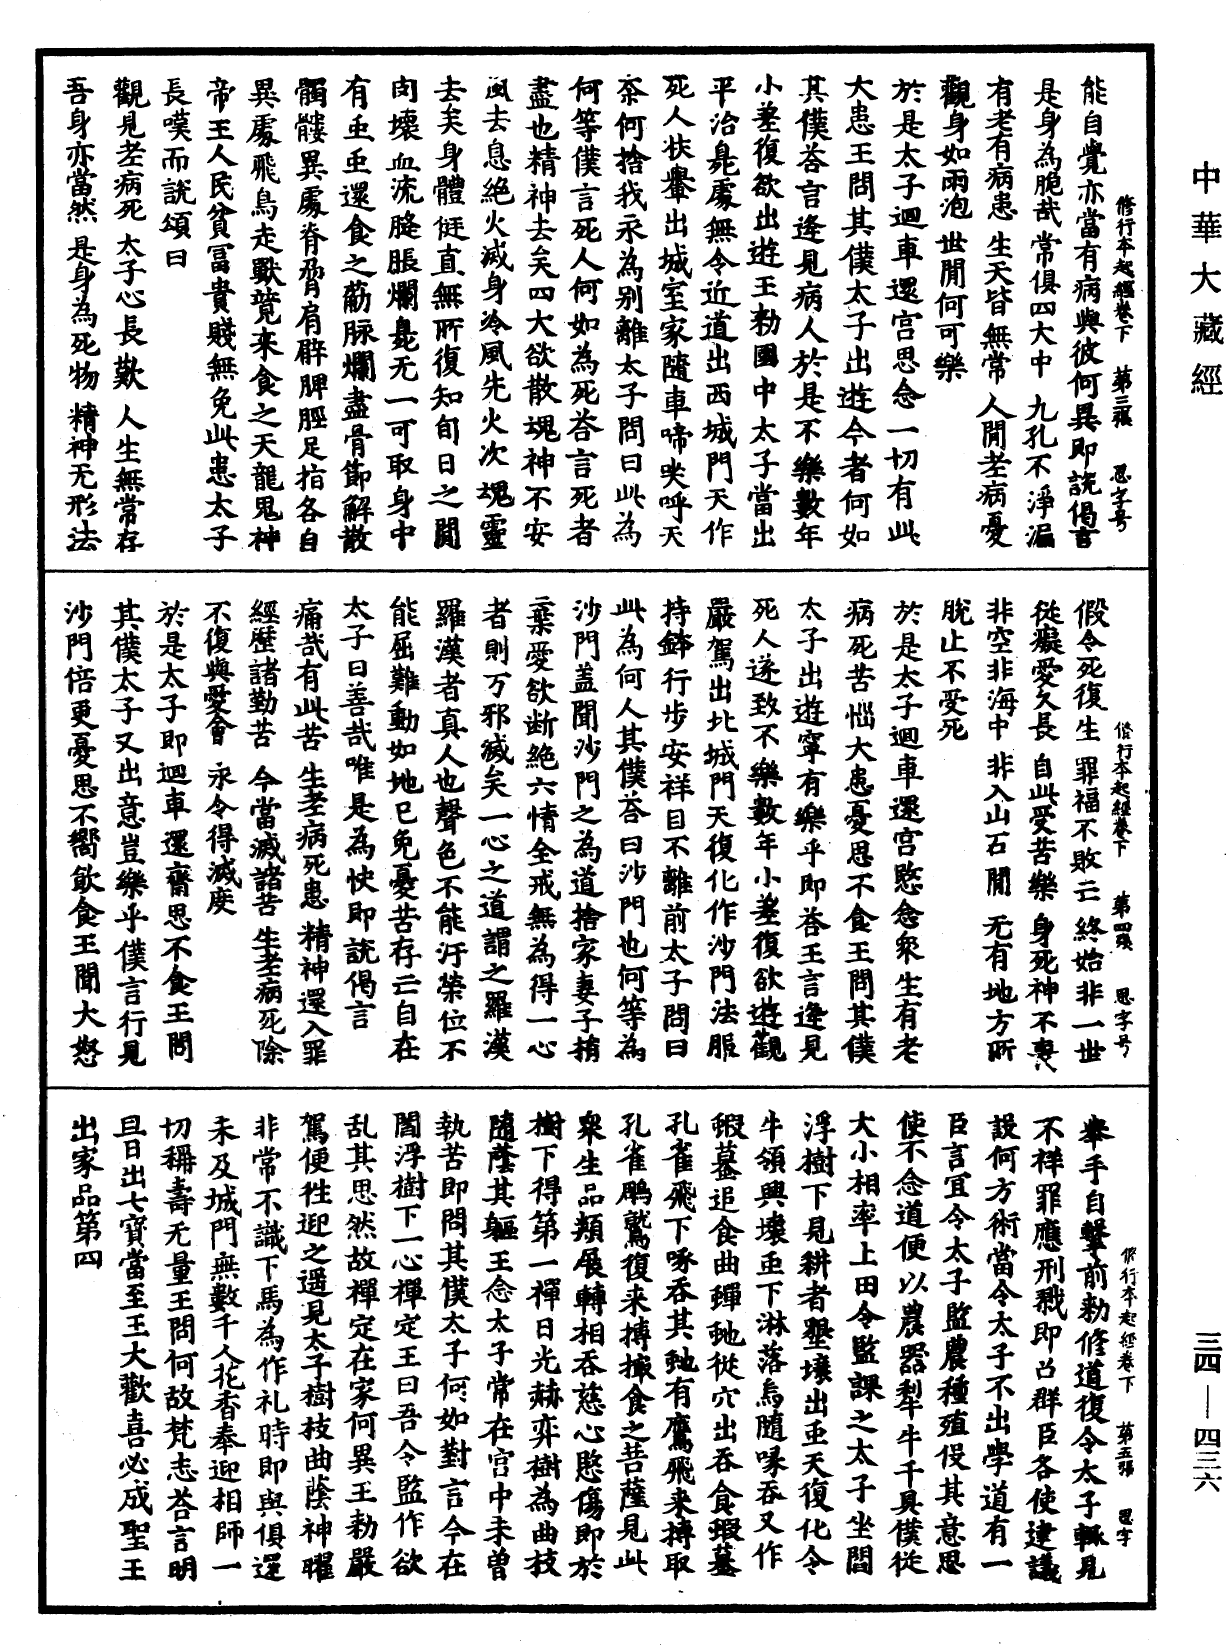 中華大藏經
修行本起經卷下　第三張　恩字号
能自覺亦當有病與彼何異即說偈言
是身為脆哉　常俱四大中　九孔不淨漏
有老有病患　生天皆無常　人間老病憂
觀身如雨泡　世間何可樂
於是太子迴車還宫思念一切有此
大患王問其僕太子出遊今者何如
其僕荅言逢見病人於是不樂數年
小差復欲出遊王勑國中太子當出
平治臭處無令近道出西城門天作
死人扶轝出城室家隨車啼哭呼天
柰何捨我永為别離太子問曰此為
何等僕言死人何如為死荅言死者
盡也精神去矣四大欲散魂神不安
風去息絶火滅身冷風先火次魂靈
去矣身體侹直無所復知旬日之間
肉壞血流膖脹爛臭无一可取身中
有虫虫還食之筋脉爛盡骨節解散
髑髏異處脊脅肩臂䏶脛足指各自
異處飛鳥走獸競来食之天龍鬼神
帝王人民貧冨貴賤無免此患太子
長嘆而說頌曰
觀見老病死　太子心長歎　人生無常存
吾身亦當然　是身為死物　精神无形法
修行本起經卷下　第四張　恩字号
假令死復生　罪福不敗亡　終始非一世
從癡愛久長　自此受苦樂　身死神不喪
非空非海中　非入山石間　无有地方所
脫止不受死
於是太子迴車還宫愍念衆生有老
病死苦惱大患憂思不食王問其僕
太子出遊寧有樂乎即荅王言逢見
死人遂致不樂數年小差復欲遊觀
嚴駕出北城門天復化作沙門法服
持鉢行步安祥目不離前太子問曰
此為何人其僕荅曰沙門也何等為
沙門盖聞沙門之為道捨家妻子捐
棄愛欲断絶六情全戒無為得一心
者則万邪滅矣一心之道謂之羅漢
羅漢者真人也聲色不能汙榮位不
能屈難動如地已免憂苦存亡自在
太子曰善哉唯是為快即說偈言
痛哉有此苦　生老病死患　精神還入罪
經歷諸勤苦　今當滅諸苦　生老病死除
不復與愛會　永令得滅度
於是太子即迴車還齋思不食王問
其僕太子又出意豈樂乎僕言行見
沙門倍更憂思不嚮飲食王聞大怒
修行本起經卷下　第五張　恩字
舉手自擊前勑修道復令太子輒見
不祥罪應刑戮即召群臣各使建議
設何方術當令太子不出學道有一
臣言宜令太子監農種殖伇其意思
使不念道便以農器犁牛千具僕從
大小相率上田令監課之太子坐閻
浮樹下見耕者墾壤出虫天復化令
牛領興壞虫下淋落烏隨啄吞又作
蝦蟇追食曲蟺虵從穴出吞食蝦蟇
孔雀飛下啄吞其虵有鷹飛来搏取
孔雀鵰鷲復来搏撮食之菩薩見此
衆生品類展轉相吞慈心愍傷即於
樹下得第一禪日光赫弈樹為曲枝
隨蔭其軀王念太子常在宫中未曾
執苦即問其僕太子何如對言今在
閻浮樹下一心禪定王曰吾令監作欲
乱其思然故禪定在家何異王勑嚴
駕便徃迎之遥見太子樹枝曲蔭神曜
非常不識下馬為作礼時即與俱還
未及城門無數千人花香奉迎相師一
切稱壽无量王問何故梵志荅言明
旦日出七寶當至王大歡喜必成聖王
出家品第四
三四—四三六